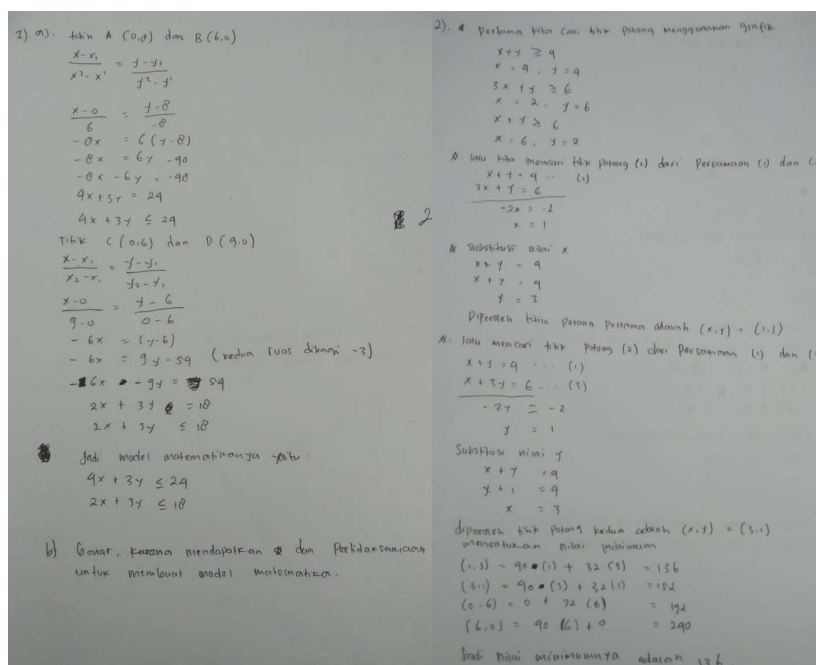 1). a). titik A (0,8) dan B (6,0)
x-x₁ / x²-x¹ = y-y₁ / y²-y¹
x-0 / 6 = y-8 / -8
-8x = 6(y-8)
-8x = 6y -48
-8x -6y = -48
4x+3y = 24
4x +3y ≤ 24
Titik C (0,6) dan D (9,0)
x-x₁ / x₂-x₁ = y-y₁ / y₂-y₁
x-0 / 9-0 = y-6 / 0-6
-6x = (y-6)
-6x = 9y -54 (kedua ruas dibagi -3)
-6x - 9y = 54
2x + 3y = 18
2x + 3y ≤ 18
Jadi model matematikanya yaitu:
4x + 3y ≤ 24
2x + 3y ≤ 18
b) Benar, karena mendapatkan dan Pertidaksamaana
untuk membuat model matematika.
2
2). Pertama kita cari titik potong menggunakan grafik
x+y ≥ 4
x = 4, y = 4
3x + y ≥ 6
x = 2, y = 6
x + y ≥ 6
x = 6, y = 2
lalu kita mencari titik potong (1) dari Persamaan (1) dan
x+y = 4 ... (1)
3x + y = 6
-2x = -2
x = 1
Substitusi nilai x
x+y = 4
x+y = 4
y = 3
Diperoleh titik potong pertama adalah (x,y) = (1,3)
lalu mencari titik potong (2) dari Persamaan (1) dan
x+y = 4 ... (1)
x + 3y = 6 ... (3)
-2y = -2
y = 1
Substitusi nilai y
x + y = 4
x + 1 = 4
x = 3
diperoleh titik potong kedua adalah (x,y) = (3,1)
menentukan nilai minimum
(1,3) = 40 • (1) + 32 (3) = 136
(3,1) = 40 • (3) + 32 (1) = 152
(0,6) = 0 + 32 (6) = 192
(6,0) = 40 (6) + 0 = 240
Jadi nilai minimumnya adalah 136